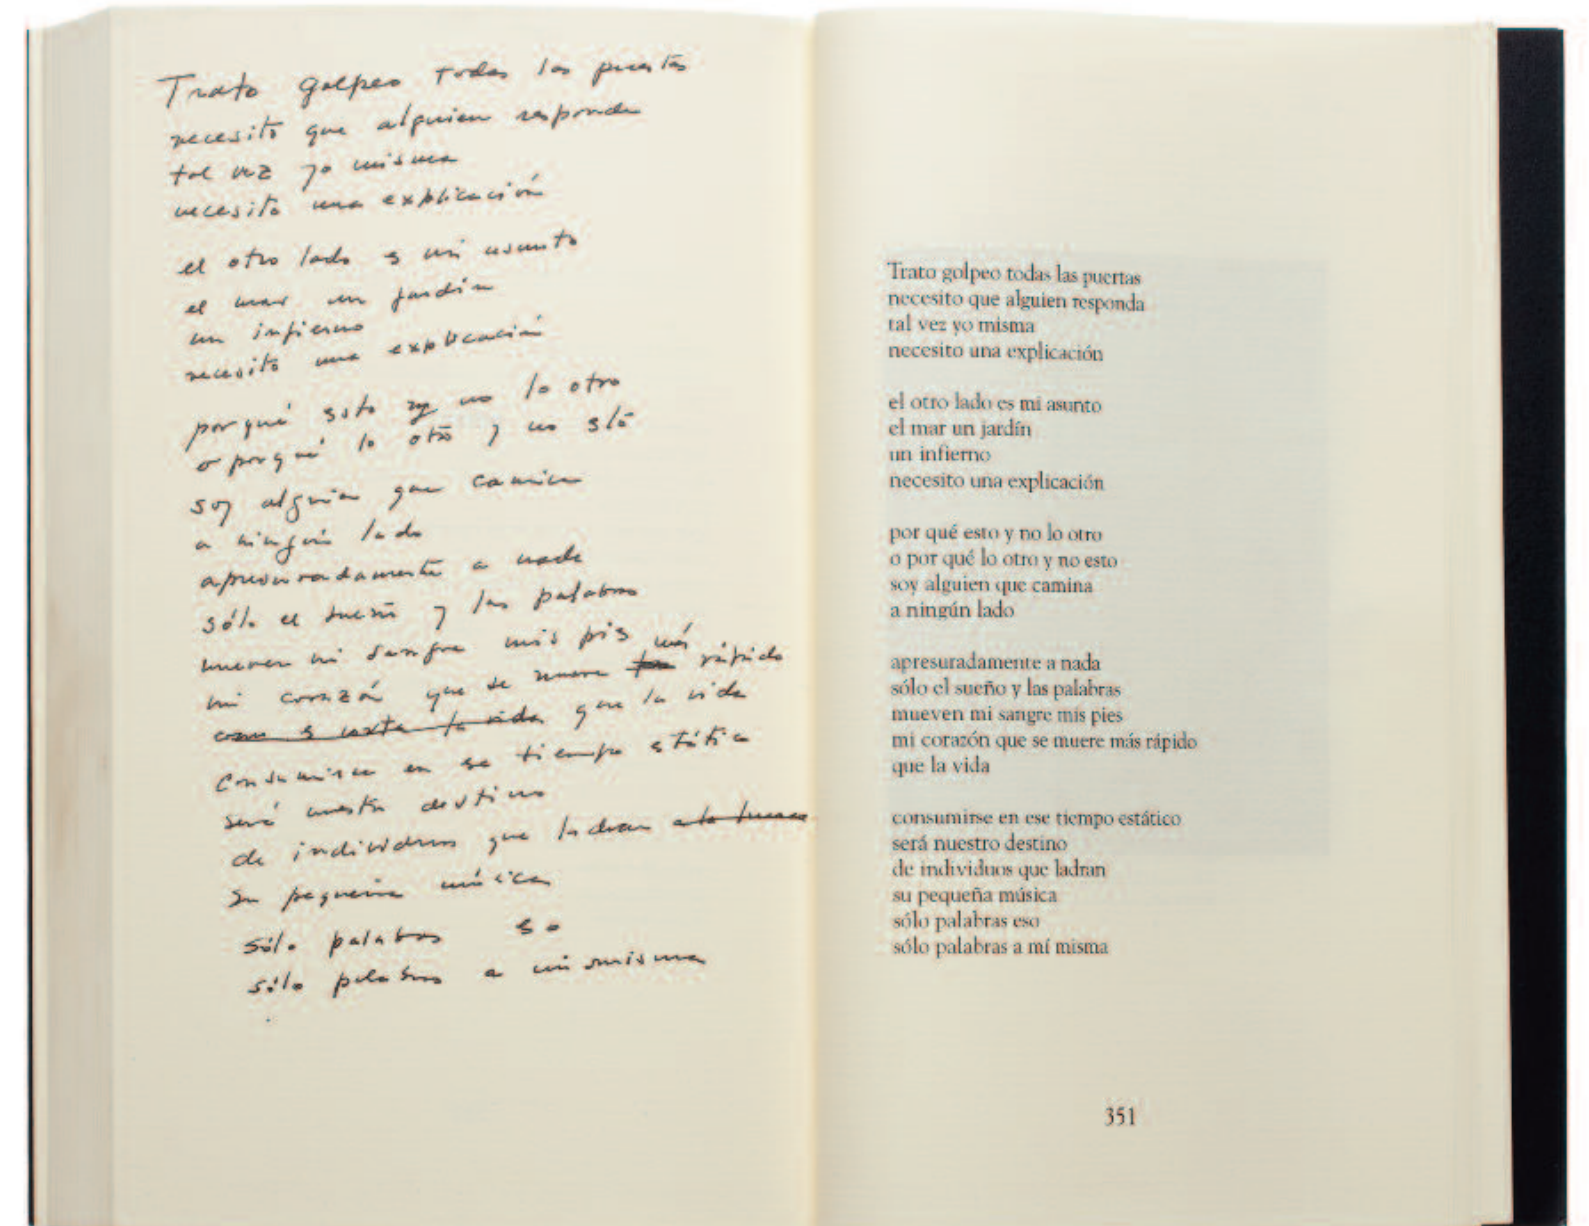 Trato golpeo todas las puertas
necesito que alguien responda
tal vez yo misma
necesito una explicación
el otro lado es mi asunto
el mar un jardín
un infierno
necesito una explicación
por qué esto y no lo otro
o por qué lo otro y no esto
soy alguien que camina
a ningún lado
apresuradamente a nada
sólo el sueño y las palabras
mueven mi sangre mis pies
mi corazón que se muere más rápido
como es corta la vida que la vida
consumirse en ese tiempo estático
será nuestro destino
de individuos que ladran
su pequeña música
sólo palabras eso
sólo palabras a mí misma
Trato golpeo todas las puertas
necesito que alguien responda
tal vez yo misma
necesito una explicación
el otro lado es mi asunto
el mar un jardín
un infierno
necesito una explicación
por qué esto y no lo otro
o por qué lo otro y no esto
soy alguien que camina
a ningún lado
apresuradamente a nada
sólo el sueño y las palabras
mueven mi sangre mis pies
mi corazón que se muere más rápido
que la vida
consumirse en ese tiempo estático
será nuestro destino
de individuos que ladran
su pequeña música
sólo palabras eso
sólo palabras a mí misma
351